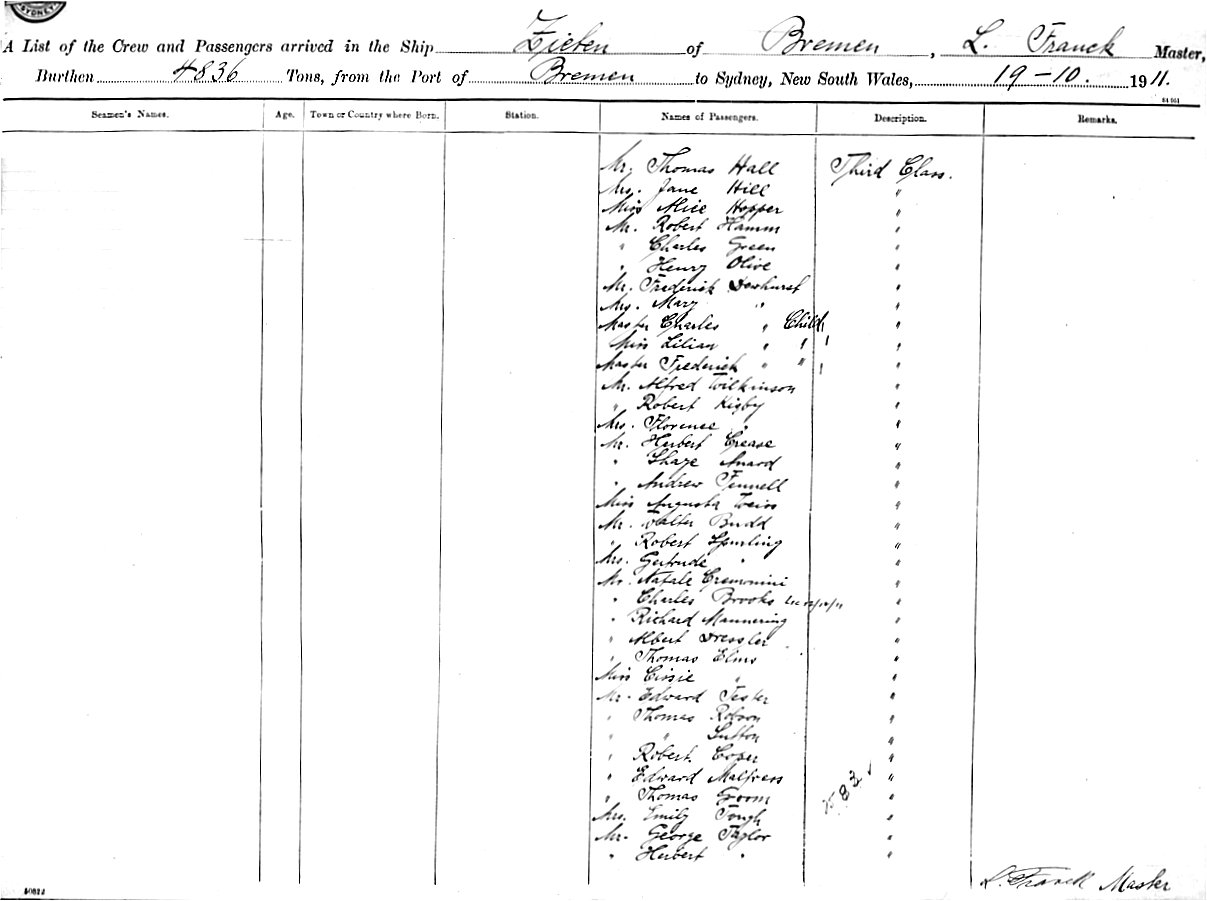 SYDNEY
A List of the Crew and Passengers arrived in the Ship Zieten of Bremen, L. Franck Master,
Burthen 4836 Tons, from the Port of Bremen to Sydney, New South Wales, 19-10. 1911.
Seamen's Names. Age. Town or Country where Born. Station. Names of Passengers. Description. Remarks.
Mr. Thomas Hall Third Class.
Mrs. Jane Hill "
Miss Alice Hopper "
Mr. Robert Hamm "
" Charles Green "
" Henry Olive "
Mr. Frederick Dewhurst "
Mrs. Mary " "
Master Charles " Child 1 "
Miss Lilian " " 1 "
Master Frederick " " 1 "
Mr. Alfred Wilkinson "
" Robert Kigby "
Mrs. Florence " "
Mr. Herbert Crease "
" Anard "
" Andrew Fennell "
Miss Augusta Weiss "
Mr. Walter Budd "
" Robert Spurling "
Mrs. Gertrude " "
Mr. Natale Cremonini "
" Charles Brooks "
" Richard Mannering "
" Albert Dressler "
" Thomas Elms "
Miss Cissie " "
Mr. Edward Tester "
" Thomas Robson "
" " Sutton "
" Robert Coper "
" Edward Malpress "
" Thomas Groom "
Mrs. Emily Tough "
Mr. George Taylor "
" Herbert " "
L. Franck Master